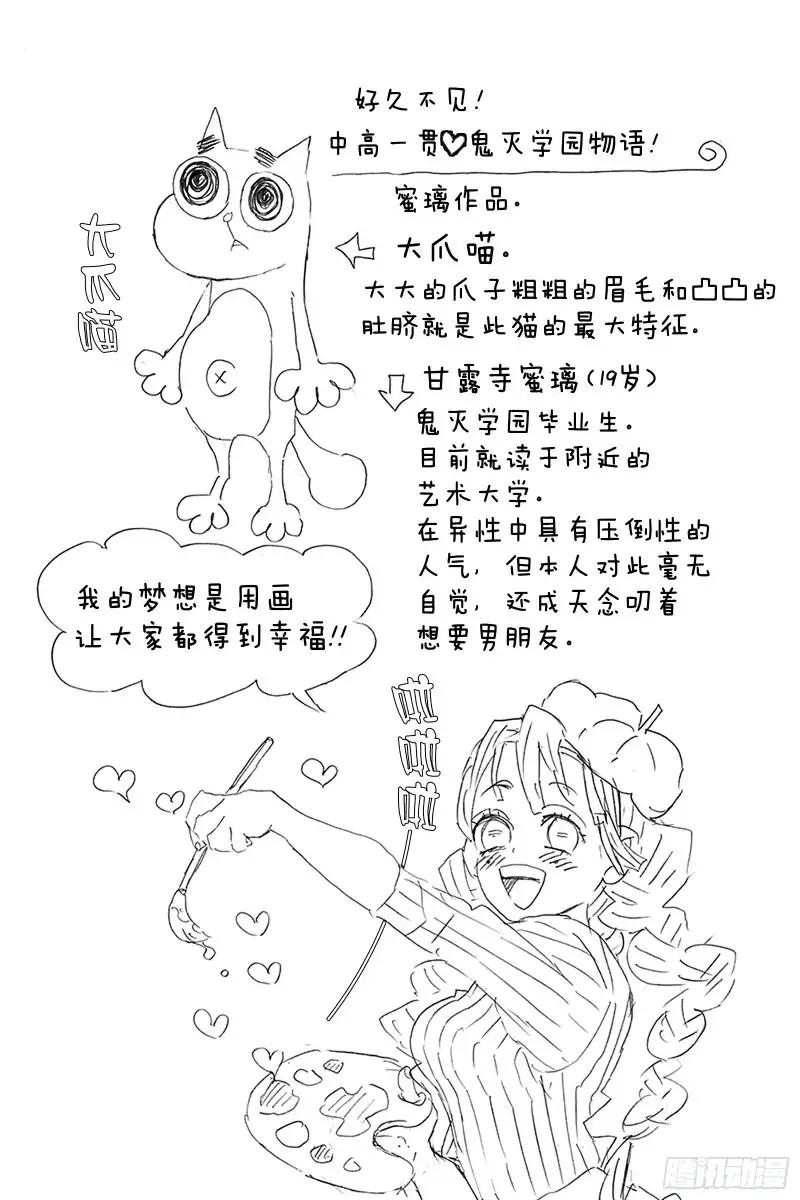 好久不见!
中高一贯♡鬼灭学园物语!
蜜璃作品。
大爪喵。
大大的爪子粗粗的眉毛和凸凸的
肚脐就是此猫的最大特征。
大爪猫
甘露寺蜜璃(19岁)
鬼灭学园毕业生。
目前就读于附近的
艺术大学。
在异性中具有压倒性的
人气,但本人对此毫无
自觉,还成天念叨着
想要男朋友。
我的梦想是用画
让大家都得到幸福!!
腾讯动漫